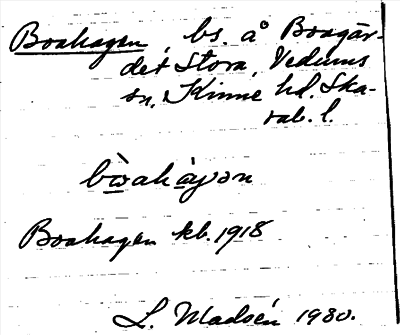 Boahagen, bs. å Boagär-
det Stora, Vedums
sn, Kinne hd. Ska-
rab. l.
bòahàgən
Boahagen kb. 1918
L. Madsén 1980.